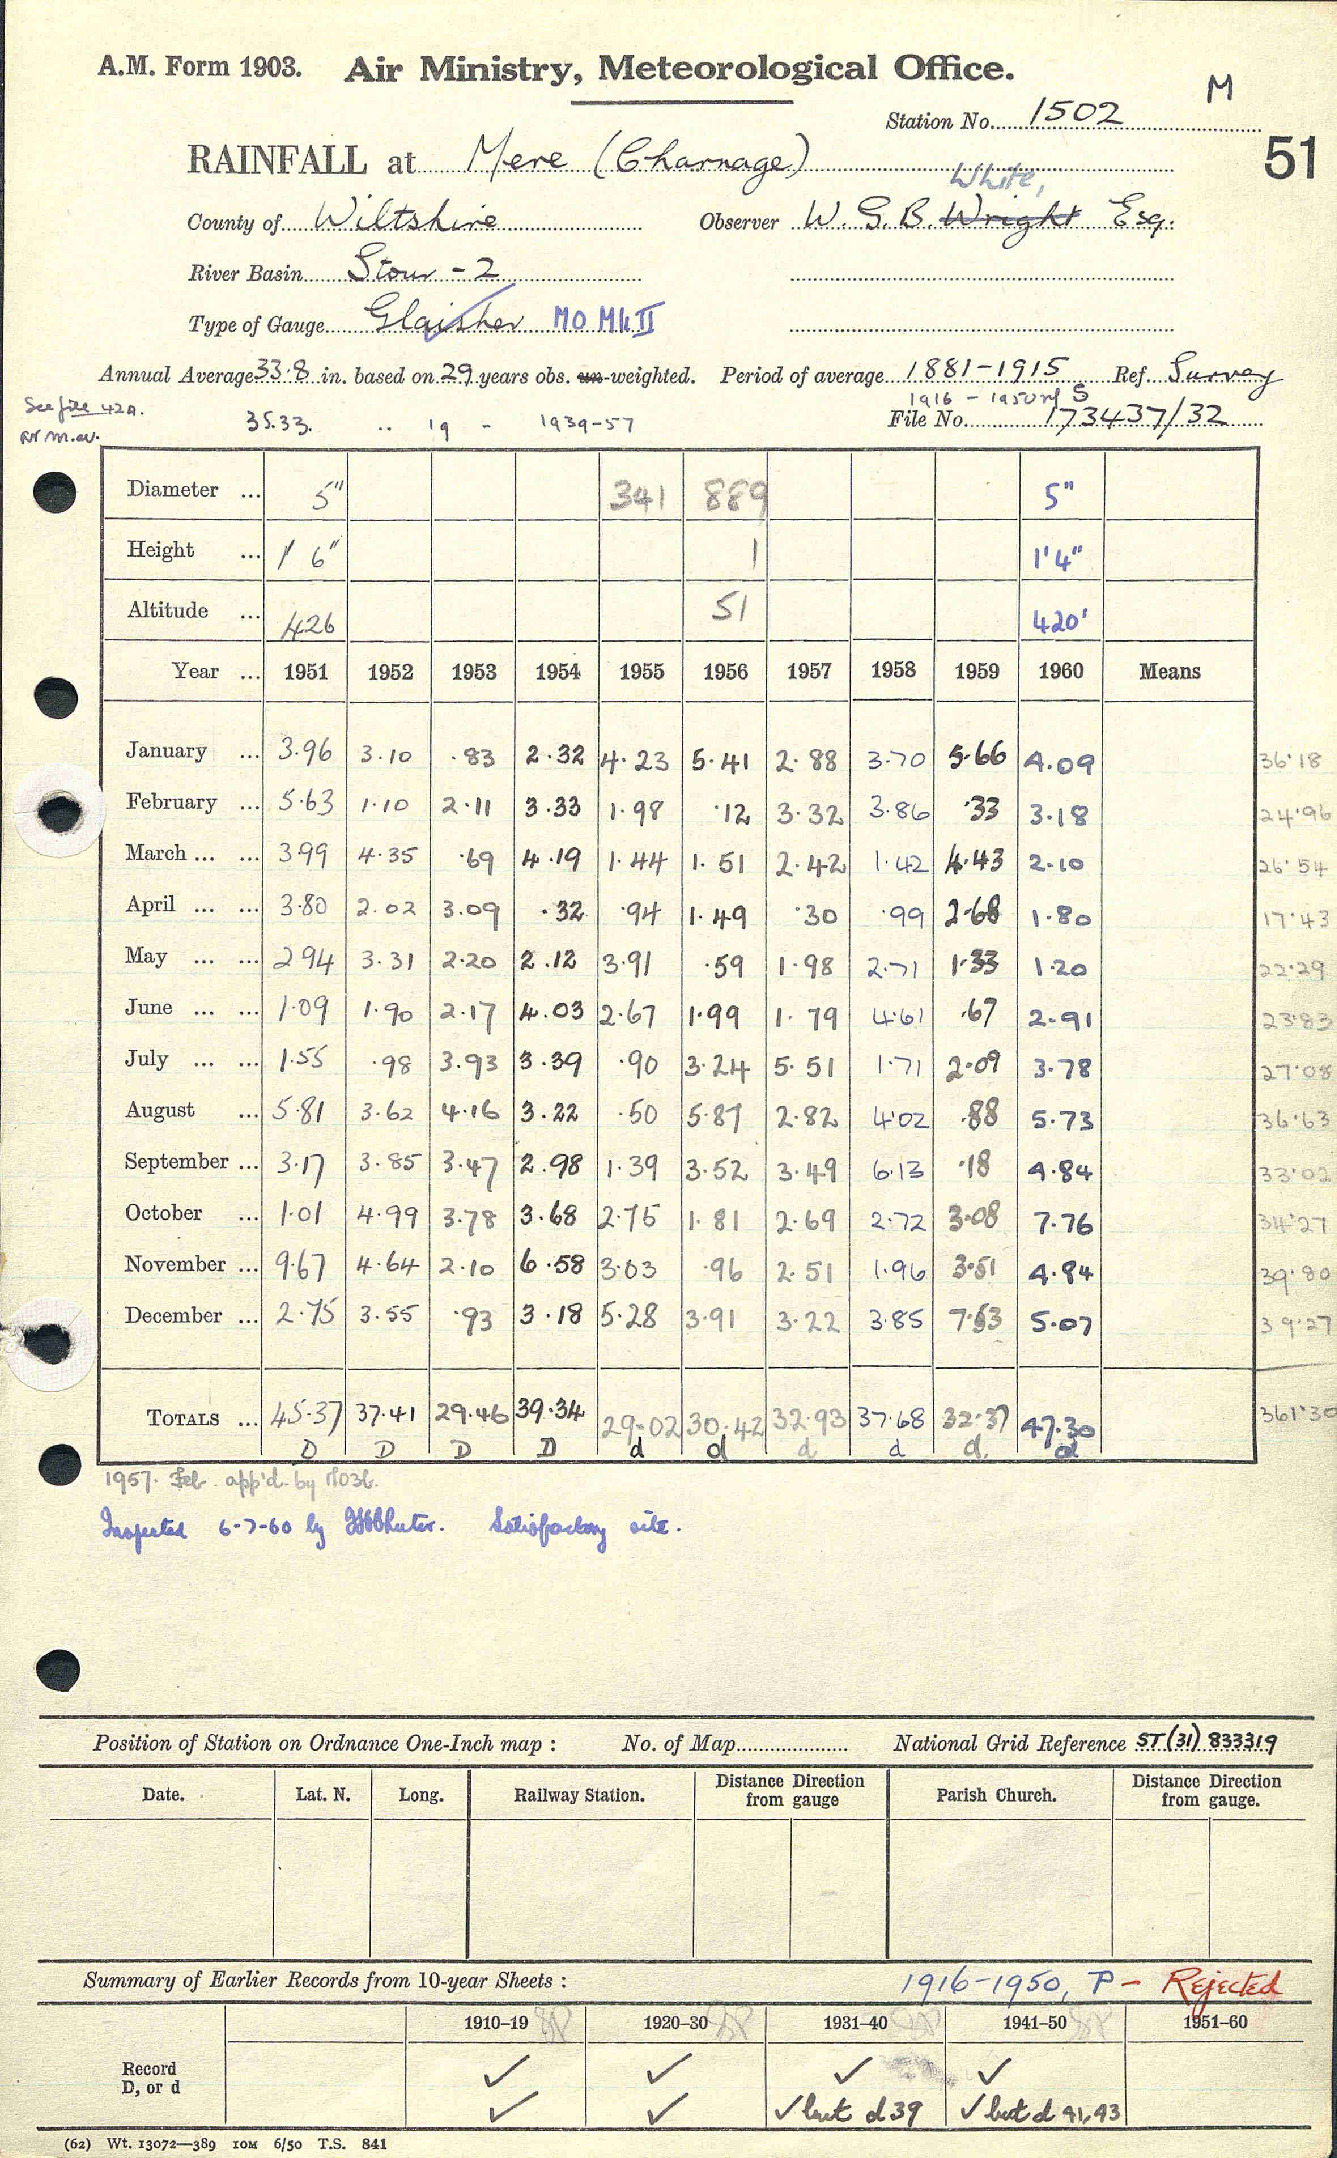 A.M. Form 1903. Air Ministry, Meteorological Office.
M
Station No. 1502
51
RAINFALL at Mere (Charnage)
White,
County of Wiltshire Observer W. G. B. Wright Esq.
River Basin Stour - 2
Type of Gauge Glaisher MO Mk II
Annual Average 33.8 in. based on 29 years obs. un-weighted. Period of average 1881-1915 Ref. Survey
See file 42A. 35.33. .. 19 - 1939-57 1916 - 1950 S
File No. 173437/32
Diameter ... 5" 341 889 5"
Height ... 1' 6" 1 1'4"
Altitude ... 426 51 420'
Year ... 1951 1952 1953 1954 1955 1956 1957 1958 1959 1960 Means
January ... 3.96 3.10 .83 2.32 4.23 5.41 2.88 3.70 5.66 4.09 36.18
February ... 5.63 1.10 2.11 3.33 1.98 .12 3.32 3.86 .33 3.18 24.96
March ... ... 3.99 4.35 .69 4.19 1.44 1.51 2.42 1.42 4.43 2.10 26.54
April ... ... 3.80 2.02 3.09 .32 .94 1.49 .30 .99 2.68 1.80 17.43
May ... ... 2.94 3.31 2.20 2.12 3.91 .59 1.98 2.71 1.33 1.20 22.29
June ... ... 1.09 1.90 2.17 4.03 2.67 1.99 1.79 4.61 .67 2.91 23.83
July ... ... 1.55 .98 3.93 3.39 .90 3.24 5.51 1.71 2.09 3.78 27.08
August ... 5.81 3.62 4.16 3.22 .50 5.87 2.82 4.02 .88 5.73 36.63
September ... 3.17 3.85 3.47 2.98 1.39 3.52 3.49 6.13 .18 4.84 33.02
October ... 1.01 4.99 3.78 3.68 2.75 1.81 2.69 2.72 3.08 7.76 34.27
November ... 9.67 4.64 2.10 6.58 3.03 .96 2.51 1.96 3.51 4.84 39.80
December ... 2.75 3.55 .93 3.18 5.28 3.91 3.22 3.85 7.53 5.07 39.27
TOTALS ... 45.37 37.41 29.46 39.34 29.02 30.42 32.93 37.68 32.37 47.30 361.30
D D D D d d d d d. d
1957. Feb. app'd. by M03b.
Inspected 6-7-60 by Satisfactory site.
Position of Station on Ordnance One-Inch map : No. of Map National Grid Reference ST (31) 833319
Date. Lat. N. Long. Railway Station. Distance from gauge Direction Parish Church. Distance from gauge. Direction
Summary of Earlier Records from 10-year Sheets : 1916-1950, P - Rejected
1910-19 1920-30 1931-40 1941-50 1951-60
Record ✓ ✓ ✓ ✓
D, or d ✓ ✓ ✓ but d 39 ✓ but d 41, 43
(62) Wt. 13072—389 10M 6/50 T.S. 841